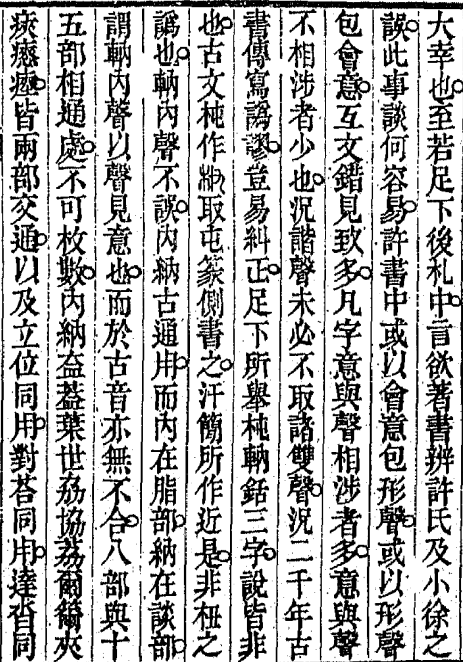 大幸也至若足下後札中言欲著書辨許氏及小徐之
誤此事談何容易許書中或以會意包形聲或以形聲
包會意互文錯見致多凡字意與聲相涉者多意與聲
不相涉者少也況諧聲未必不取諸雙聲況二千年古
書傳寫譌謬豈易糾正足下所舉杶軜銛三字說皆非
也古文杶作𣐊取屯篆側書之汗簡所作近是非杻之
譌也軜內聲不誤內納古通用而內在脂部納在談部
謂軜內聲以聲見意也而於古音亦無不合八部與十
五部相通處不可枚數內納盇葢葉世荔協荔爾籋夾
瘞瘱㾜皆兩部交通以及立位同用對荅同用達沓同